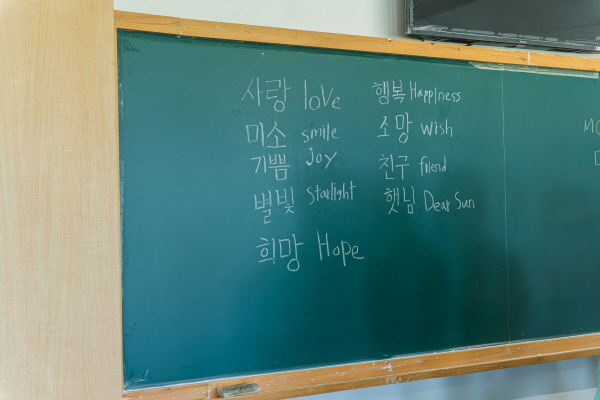 사랑 love
미소 smile
기쁨 Joy
별빛 Starlight
희망 Hope
행복 Happiness
소망 wish
친구 friend
햇님 Dear Sun